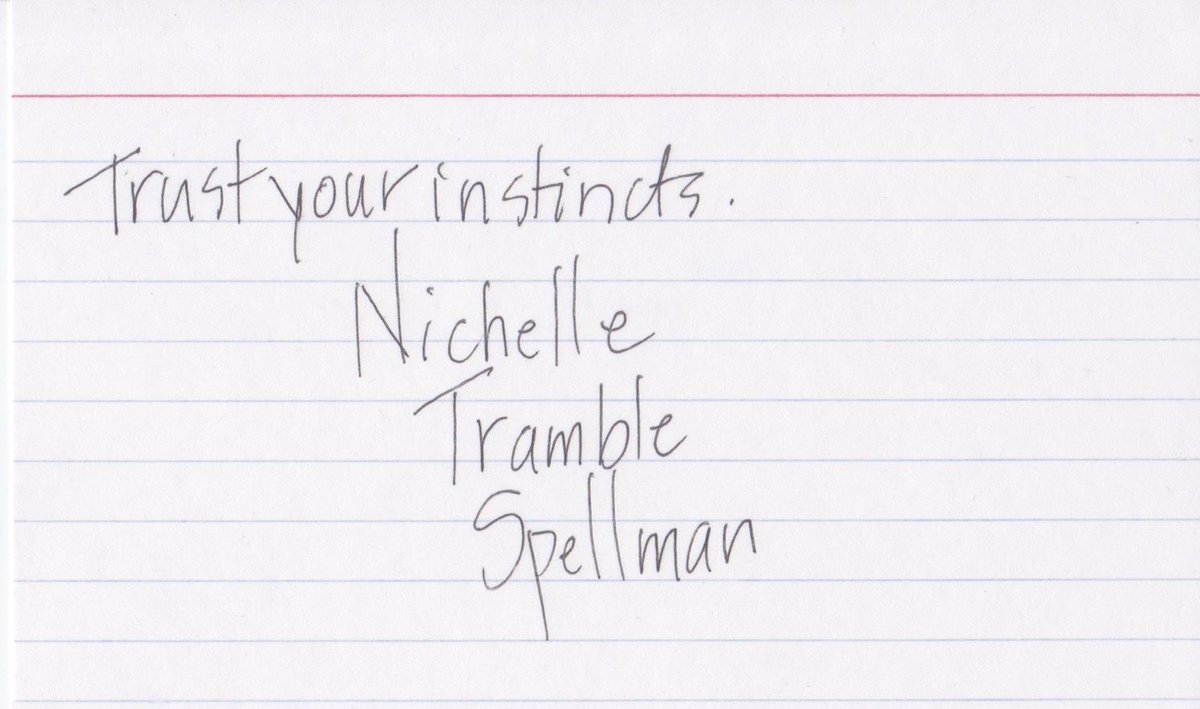 Trust your instincts.
Nichelle
Tramble
Spellman